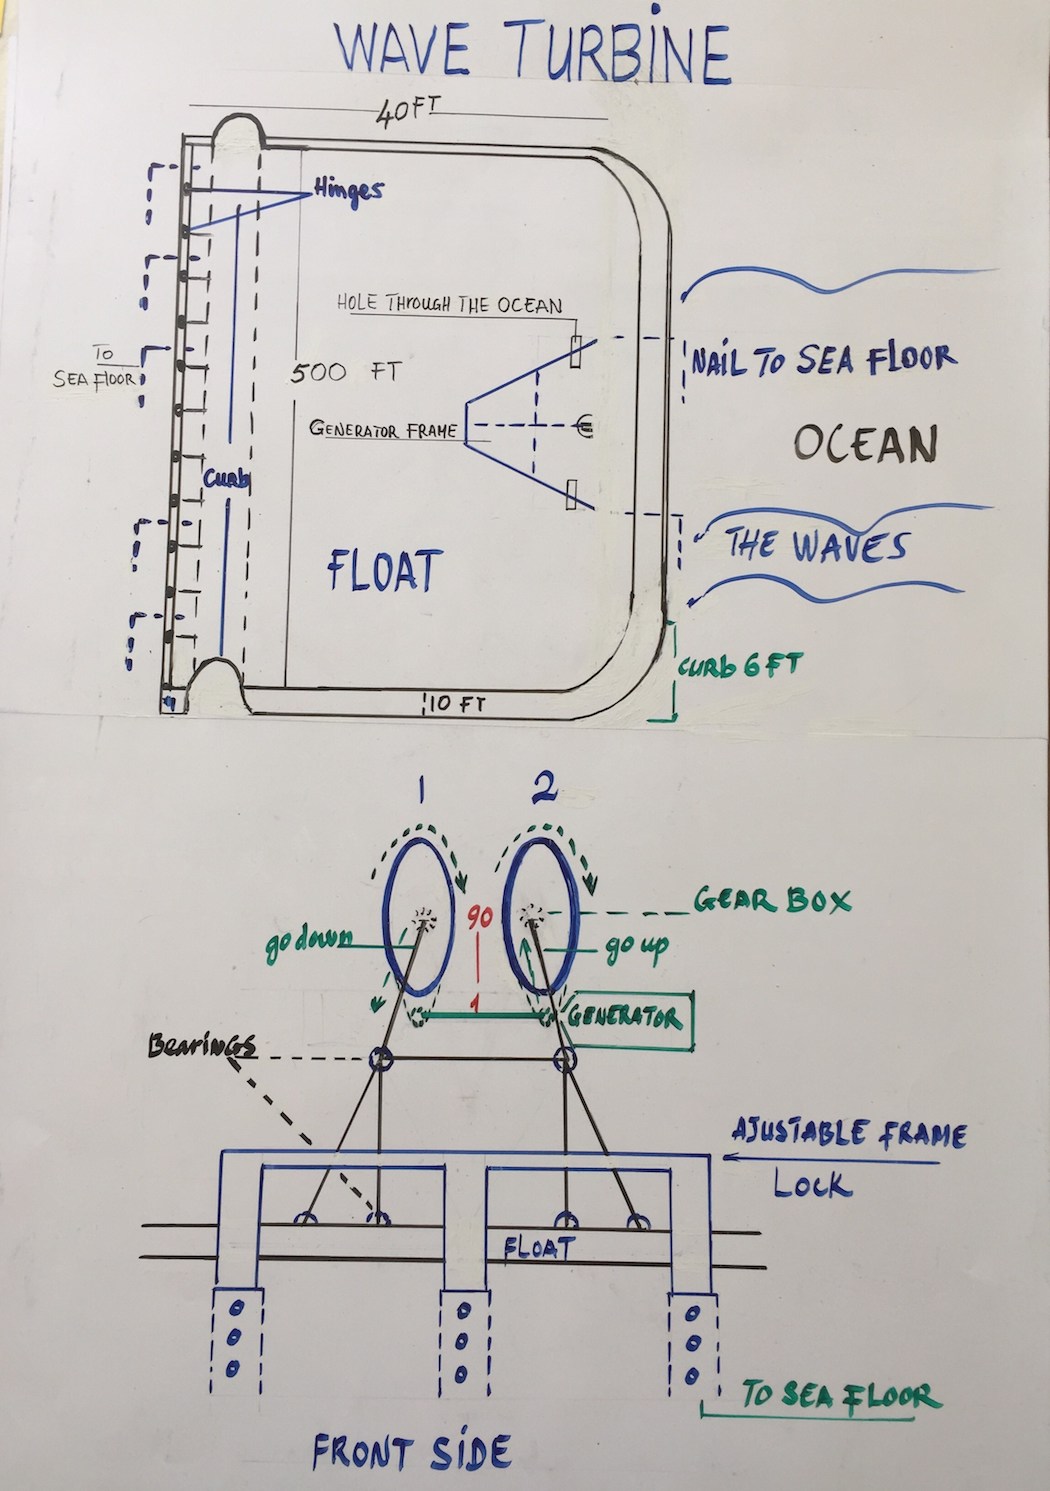 WAVE TURBINE
40 FT
Hinges
HOLE THROUGH THE OCEAN
TO
SEA FLOOR
500 FT
NAIL TO SEA FLOOR
GENERATOR FRAME
OCEAN
Curb
FLOAT
THE WAVES
CURB 6 FT
10 FT
1
2
90
GEAR BOX
go down
go up
1
GENERATOR
Bearings
AJUSTABLE FRAME
LOCK
FLOAT
TO SEA FLOOR
FRONT SIDE